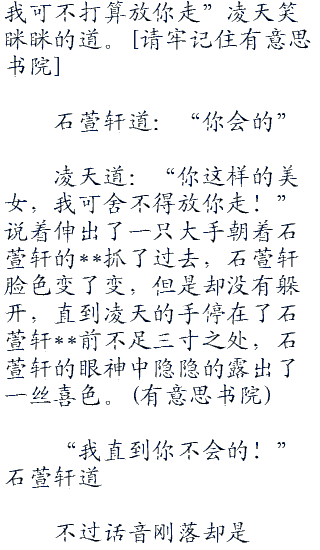 我可不打算放你走”凌天笑
眯眯的道。[请牢记住有意思
书院]
石萱轩道：“你会的”
凌天道：“你这样的美
女，我可舍不得放你走！”
说着伸出了一只大手朝着石
萱轩的**抓了过去，石萱轩
脸色变了变，但是却没有躲
开，直到凌天的手停在了石
萱轩**前不足三寸之处，石
萱轩的眼神中隐隐的露出了
一丝喜色。(有意思书院)
“我直到你不会的！”
石萱轩道
不过话音刚落却是